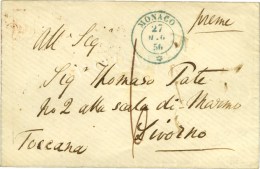 MONACO
27
56
preme
All' Sig
Sig Thomaso Pate
No 2 alla scala di Marino
Livorno
Toscana